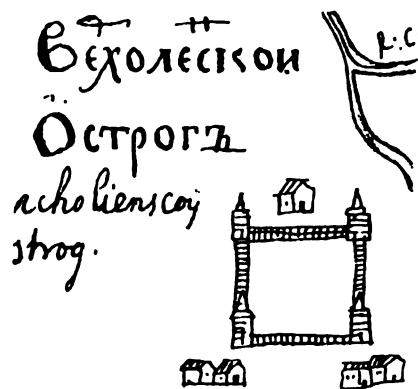 Вехолескои
Острогъ
rcholienscoÿ
strog.